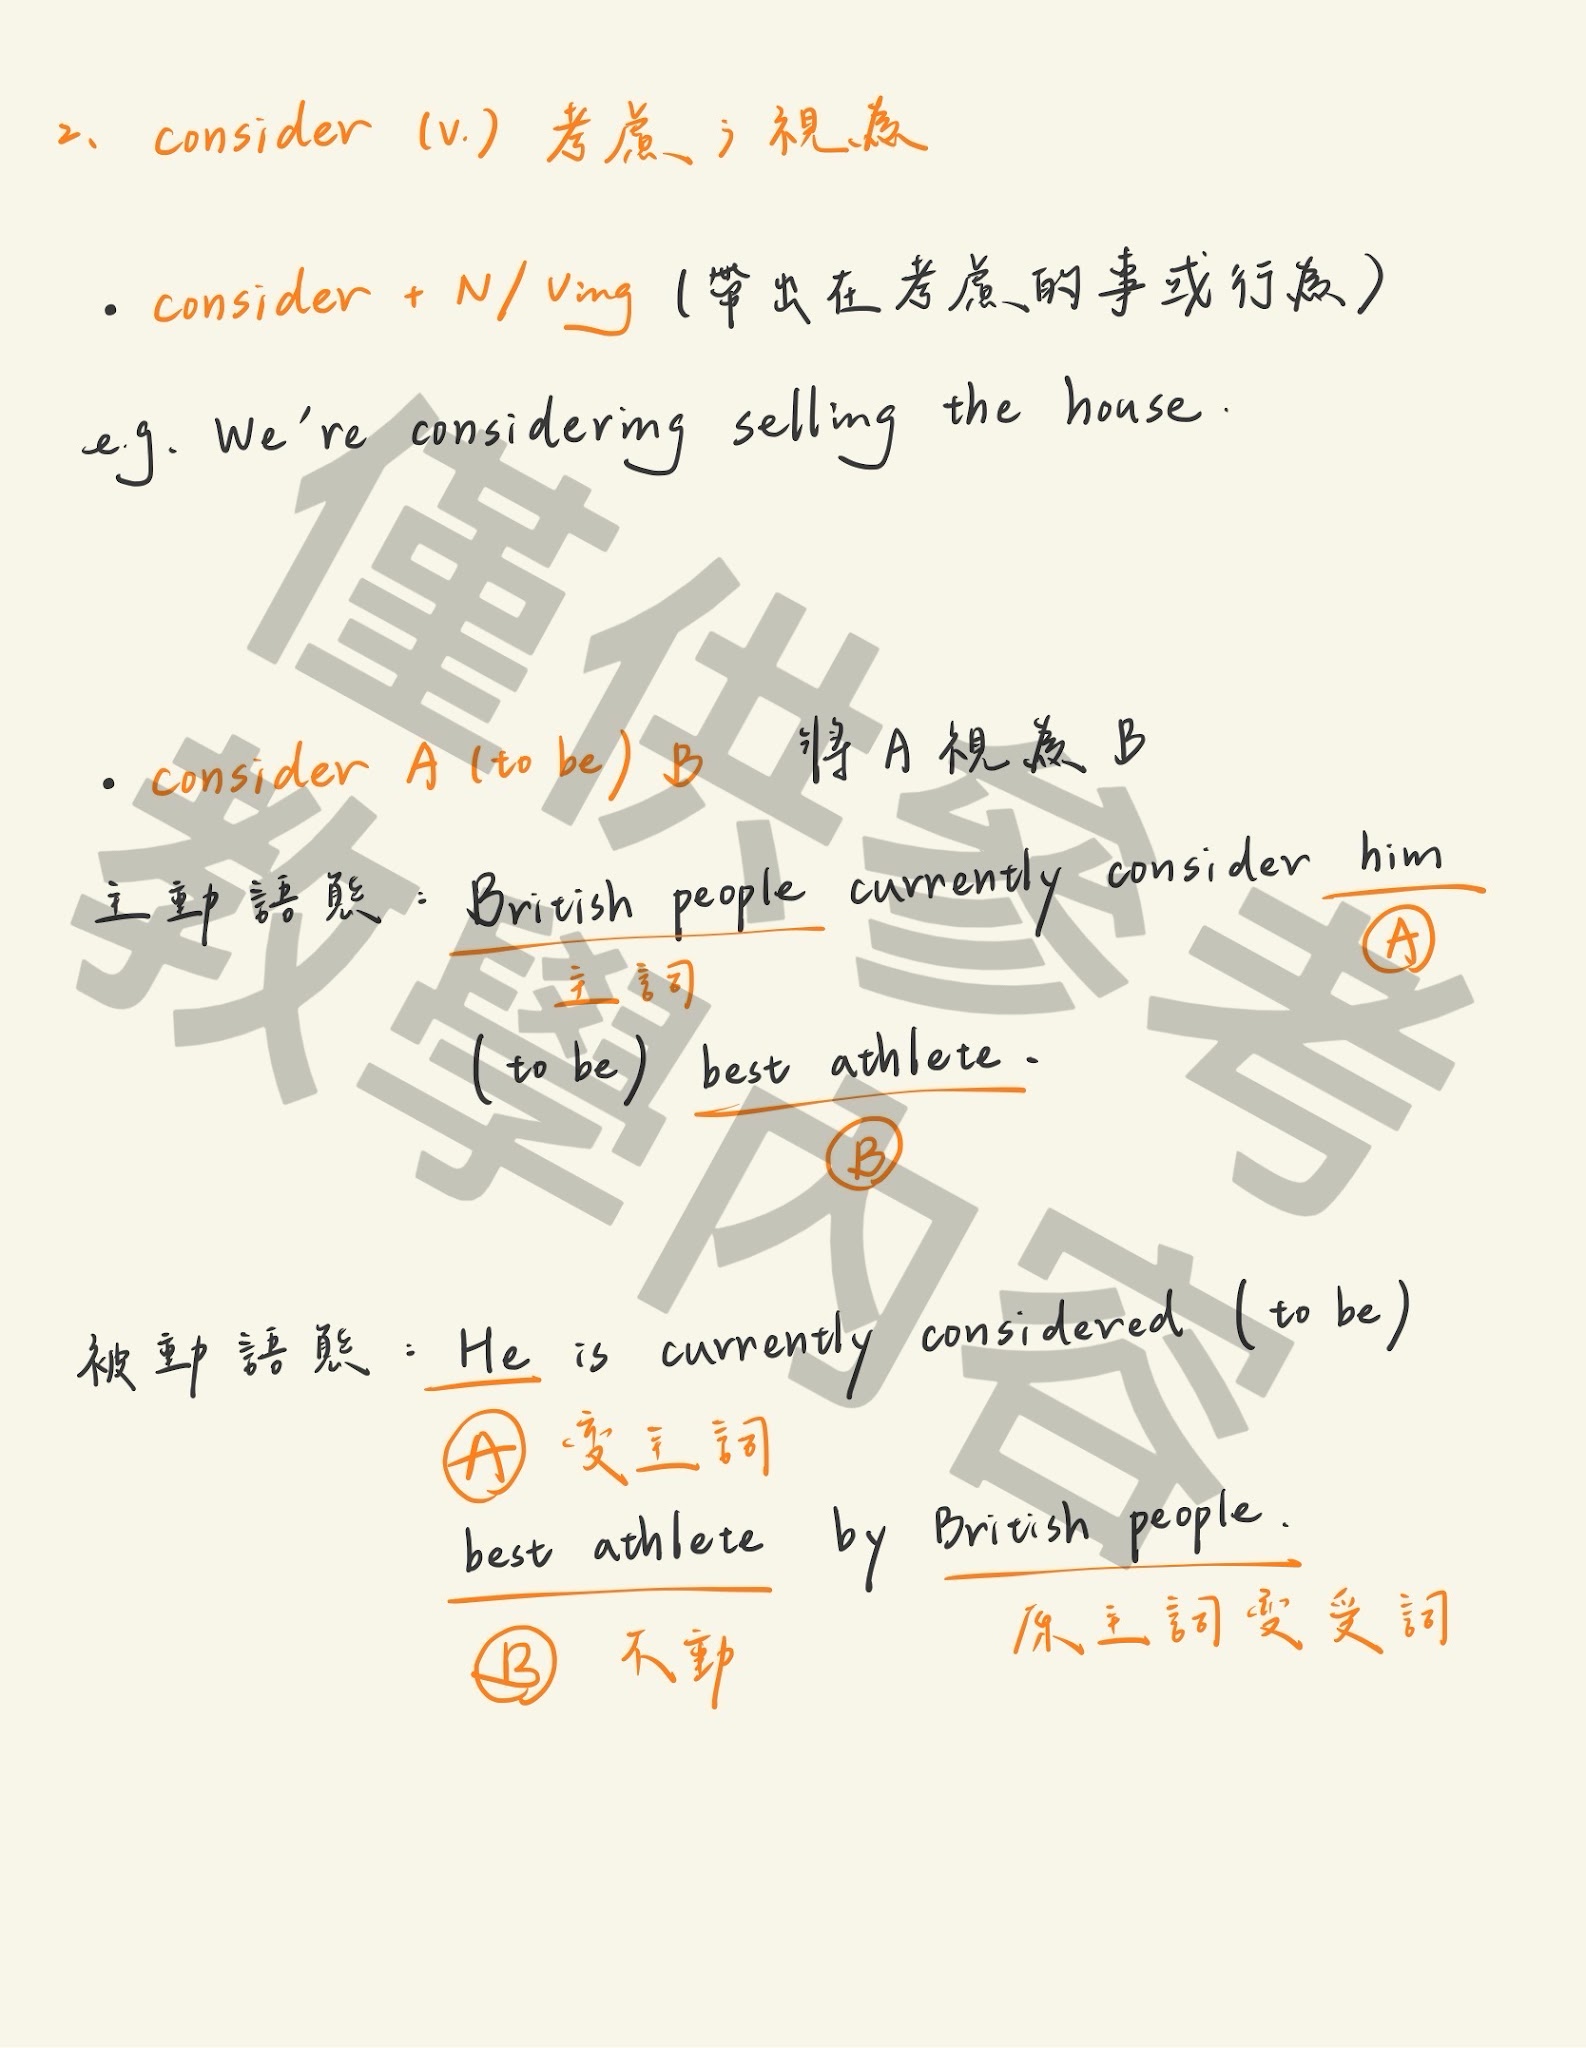 2、 consider (v.) 考慮；視為
• consider + N/Ving (帶出在考慮的事或行為)
e.g. We're considering selling the house.
• consider A (to be) B 將A視為B
主動語態：British people currently consider him
主詞 A
(to be) best athlete.
B
被動語態：He is currently considered (to be)
A 變主詞
best athlete by British people.
B 不動 原主詞變受詞
僅供參考
教學內容